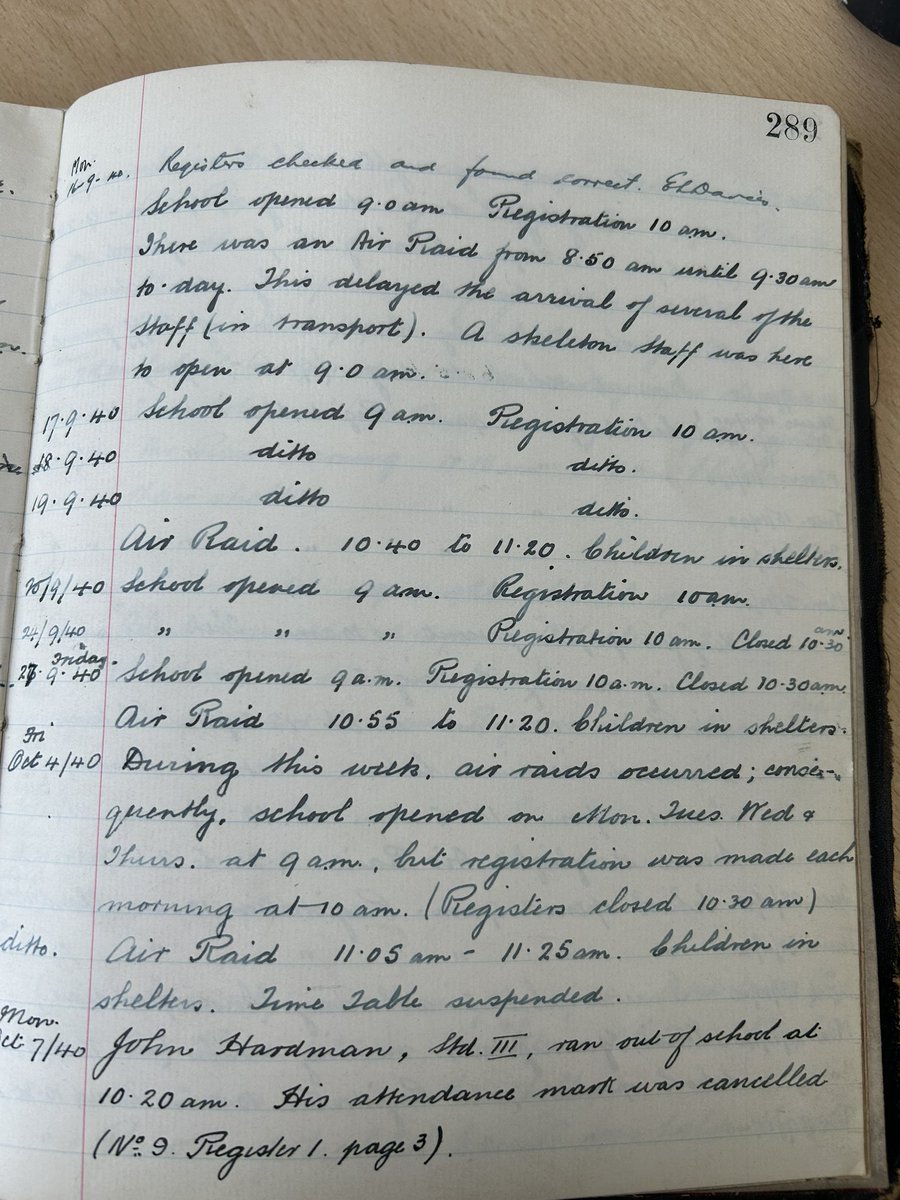 289
Mon.
16-9-40. Registers checked and found correct. ELDavies.
School opened 9.0 am Registration 10 am.
There was an Air Raid from 8.50 am until 9.30 am
to-day. This delayed the arrival of several of the
staff (in transport). A skeleton staff was here
to open at 9.0 am.
17.9.40 School opened 9 am. Registration 10 am.
18.9.40 ditto ditto.
19.9.40 ditto ditto.
Air Raid. 10.40 to 11.20. Children in shelters.
20/9/40 School opened 9 am. Registration 10 am.
24/9/40 " " " Registration 10 am. Closed 10.30 am
Friday.
27.9.40 School opened 9 a.m. Registration 10 a.m. Closed 10.30 am.
Air Raid 10.55 to 11.20. Children in shelters.
Fri
Oct 4/40 During this week, air raids ocurred; conse-
quently, school opened on Mon. Tues. Wed &
Thurs. at 9 a.m., but registration was made each
morning at 10 am. (Registers closed 10.30 am)
ditto. Air Raid 11.05 am - 11.25 am. Children in
shelters. Time Table suspended.
Mon.
Oct 7/40 John Hardman, Std. III, ran out of school at
10.20 am. His attendance mark was cancelled
(No. 9. Register 1. page 3).